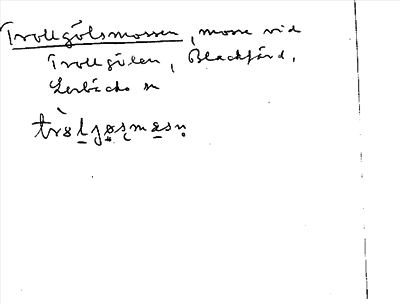 Trollgölsmossen, mosse vid
Trollgölen, Blackfärd,
Lerbäcks sn